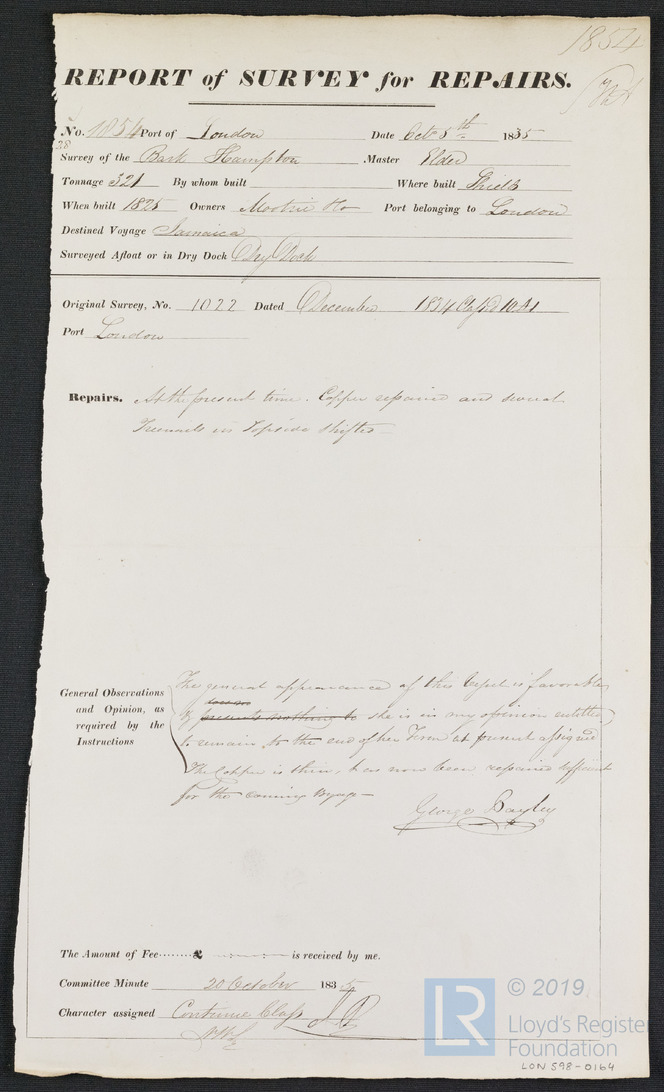 1854
REPORT of SURVEY for REPAIRS.
No. 1854 Port of London Date Oct 5th 1835
28
Survey of the Bark Hampton Master Elder
Tonnage 321 By whom built Where built Shields
When built 1825 Owners Port belonging to London
Destined Voyage Jamaica
Surveyed Afloat or in Dry Dock Dry Dock
Original Survey, No. 1022 Dated December 1834 Classed 10 A1
Port London
Repairs. At the present time. Copper repaired and several
Treenails in Topside shifted
General Observations
and Opinion, as
required by the
Instructions
The general appearance of this Vessel is favorable,
& presents nothing to she is in my opinion entitled
to remain to the end of her Term at present assigned
The Copper is thin, has now been repaired sufficient
for the coming Voyage —
George Bayley
The Amount of Fee........£ is received by me.
Committee Minute 20 October 1835
Character assigned Continue Class
© 2019
LR
Lloyd's Register
Foundation
LON 598-0164